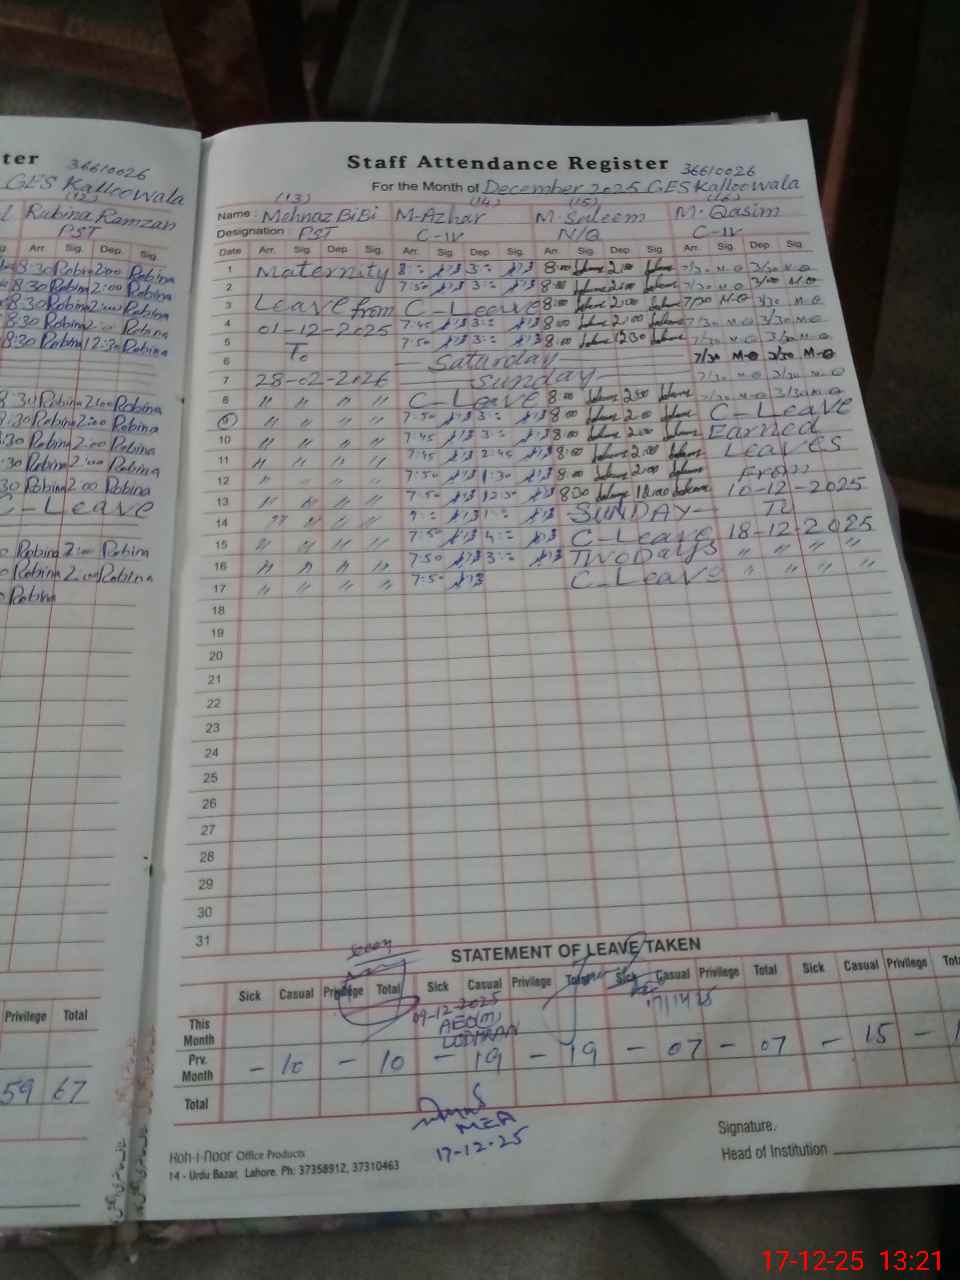 ter
36610026
GES Kalloewala
(12)
Rubina Ramzan
PST
Arr. Sig. Dep. Sig.
8:30 Robina 2:00 Robina
8:30 Robina 2:00 Robina
8:30 Robina 2:00 Robina
8:30 Robina 2:00 Robina
8:30 Robina 12:30 Robina
8:30 Robina 2:00 Robina
:30 Robina 2:00 Robina
:30 Robina 2:00 Robina
:30 Robina 2:00 Robina
30 Robina 2:00 Robina
C-Leave
Robina 2:00 Robina
Robina 2:00 Robina
Robina
Privilege Total
59 67
Staff Attendance Register 36610026
For the Month of December 2025 GES Kalloewala
(13) (14) (15) (16)
Name : Mehnaz BiBi M-Azhar M. Saleem M. Qasim
Designation : PST C-IV N/Q C-IV
Date Arr. Sig. Dep. Sig. Arr. Sig. Dep. Sig. Arr. Sig. Dep. Sig. Arr. Sig. Dep. Sig.
1 Maternity 8:00 2:00 7/30 M-Q 3/30 M-Q
2 7:50 8:00 2:00 7/30 M-Q 3/00 M-Q
3 Leave from C-Leave 8:00 2:00 7/30 M-Q 3/30 M-Q
4 01-12-2025 7:45 8:00 2:00 7/30 M-Q 3/30 M-Q
5 To 7:50 8:00 1230 7/30 M-Q 3/30 M-Q
6 Saturday 7/30 M-Q 3/30 M-Q
7 28-02-2026 Sunday 7/30 M-Q 3/30 M-Q
8 " " " " C-Leave 8:00 2:00 7/30 M-Q 3/30 M-Q
9 " " " " 7:50 8:00 2:00 C-Leave
10 " " " " 7:45 8:00 2:00 Earned
11 " " " " 7:45 2:45 8:00 2:00 Leaves
12 " " " " 7:50 1:30 8:00 2:00 From
13 " " " " 7:50 12:30 830 12:00 10-12-2025
14 " " " " SUNDAY To
15 " " " " 7:50 C-Leave 18-12-2025
16 " " " " 7:50 Two Days " " " "
17 " " " " 7:50 C-Leave " " " "
18
19
20
21
22
23
24
25
26
27
28
29
30
31
STATEMENT OF LEAVE TAKEN
Sick Casual Privilege Total Sick Casual Privilege Total Sick Casual Privilege Total Sick Casual Privilege Tot
09-12-2025
AEO(M)
LODHRAN
This Month
Prv. Month - 10 - 10 - 19 - 19 - 07 - 07 - 15 -
Total
MEA
17-12-25
Signature.
Head of Institution
Koh-i-Noor Office Products
14 - Urdu Bazar, Lahore. Ph: 37358912, 37310463
17-12-25 13:21